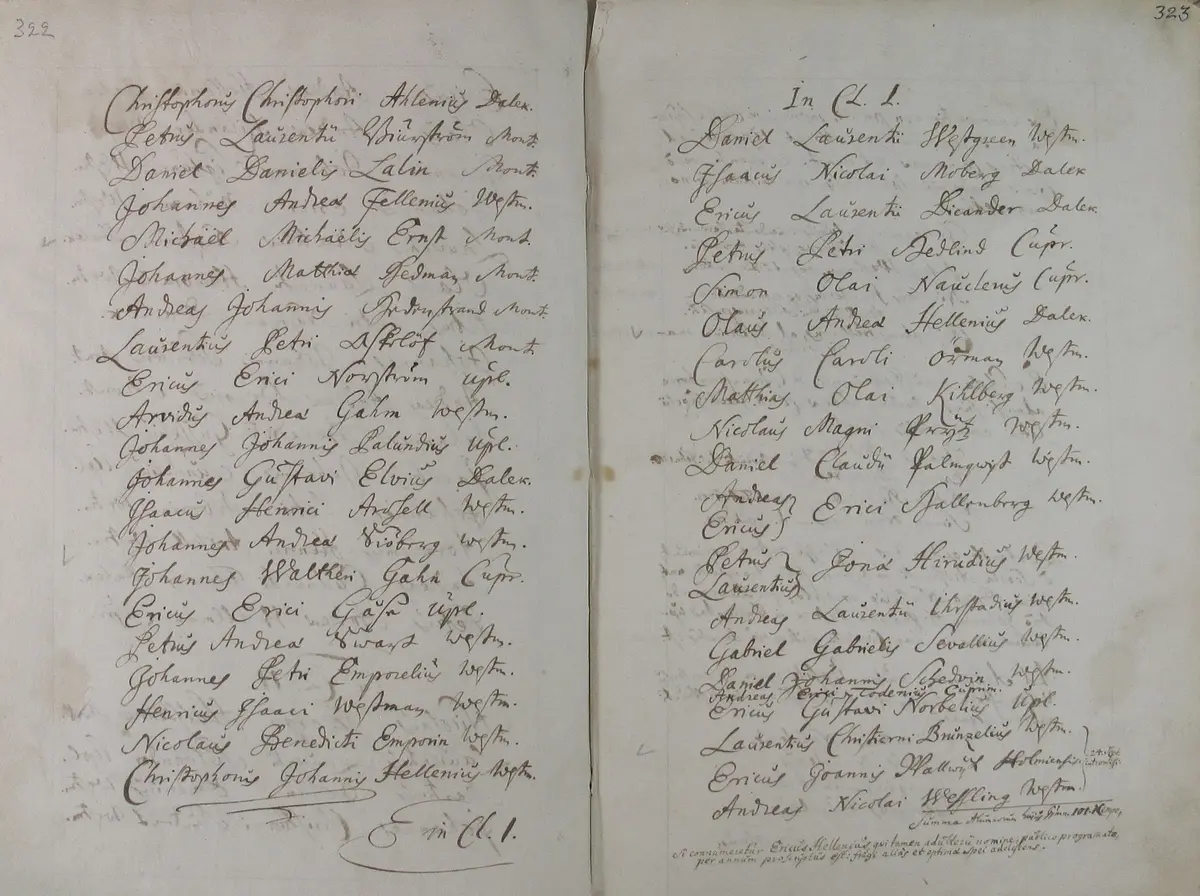 322
Christophorus Christophori Ahlenius Dalek.
Petrus Laurentii Biurström Mont.
Daniel Danielis Lalin Mont.
Johannes Andreæ Fellenius Westm.
Michaël Michaëlis Ernst Mont.
Johannes Matthiæ Hedman Mont.
Andreas Johannis Hedenstrand Mont.
Laurentius Petri Askolöf Mont.
Ericus Erici Norström Upl.
Arvidus Andreæ Gahm Westm.
Johannes Johannis Palundius Upl.
Johannes Gustavi Elvius Dalek.
Isaacus Henrici Arosell Westm.
Johannes Andreæ Siöberg Westm.
Johannes Waltheri Gahn Cupr.
Ericus Erici Gåse Upl.
Petrus Andreæ Swart Westm.
Johannes Petri Emporelius Westm.
Henricus Isaaci Westman Westm.
Nicolaus Benedicti Emporin Westm.
Christophorus Johannis Hellenius Westm.
E in Cl. 1.
323
In Cl. 1.
Daniel Laurentii Westgreen Westm.
Isaacus Nicolai Moberg Dalek
Ericus Laurentii Dicander Dalek.
Petrus Petri Hedlind Cupr.
Simon Olai Nauclerus Cupr.
Olaus Andreæ Hellenius Dalek.
Carolus Caroli Örman Westm.
Matthias Olai Kihlberg Westm.
Nicolaus Magni Prytz Westm.
Daniel Claudii Palmqwist Westm.
Andreas
Ericus Erici Hallenberg Westm.
Petrus
Laurentius Jonæ Hirudius Westm.
Andreas Laurentii Westm.
Gabriel Gabrielis Sevallius Westm.
Daniel Johannis Schedvin Westm.
Andreas Erici Todenius Cuprim.
Ericus Gustavi Norbelius Upl.
Laurentius Christierni Brunzelius Westm.
Ericus Joannis Wallwijk Holmiensis
Andreas Nicolai Wessling Westm.
Summa Alumnorum hujus Gymn. 101.
Si connumeretur Ericus Hellenius, qui tamen adulterii nomine, publico programmate,
per annum proscriptus est: frugi alias et optimæ spei adolescens.